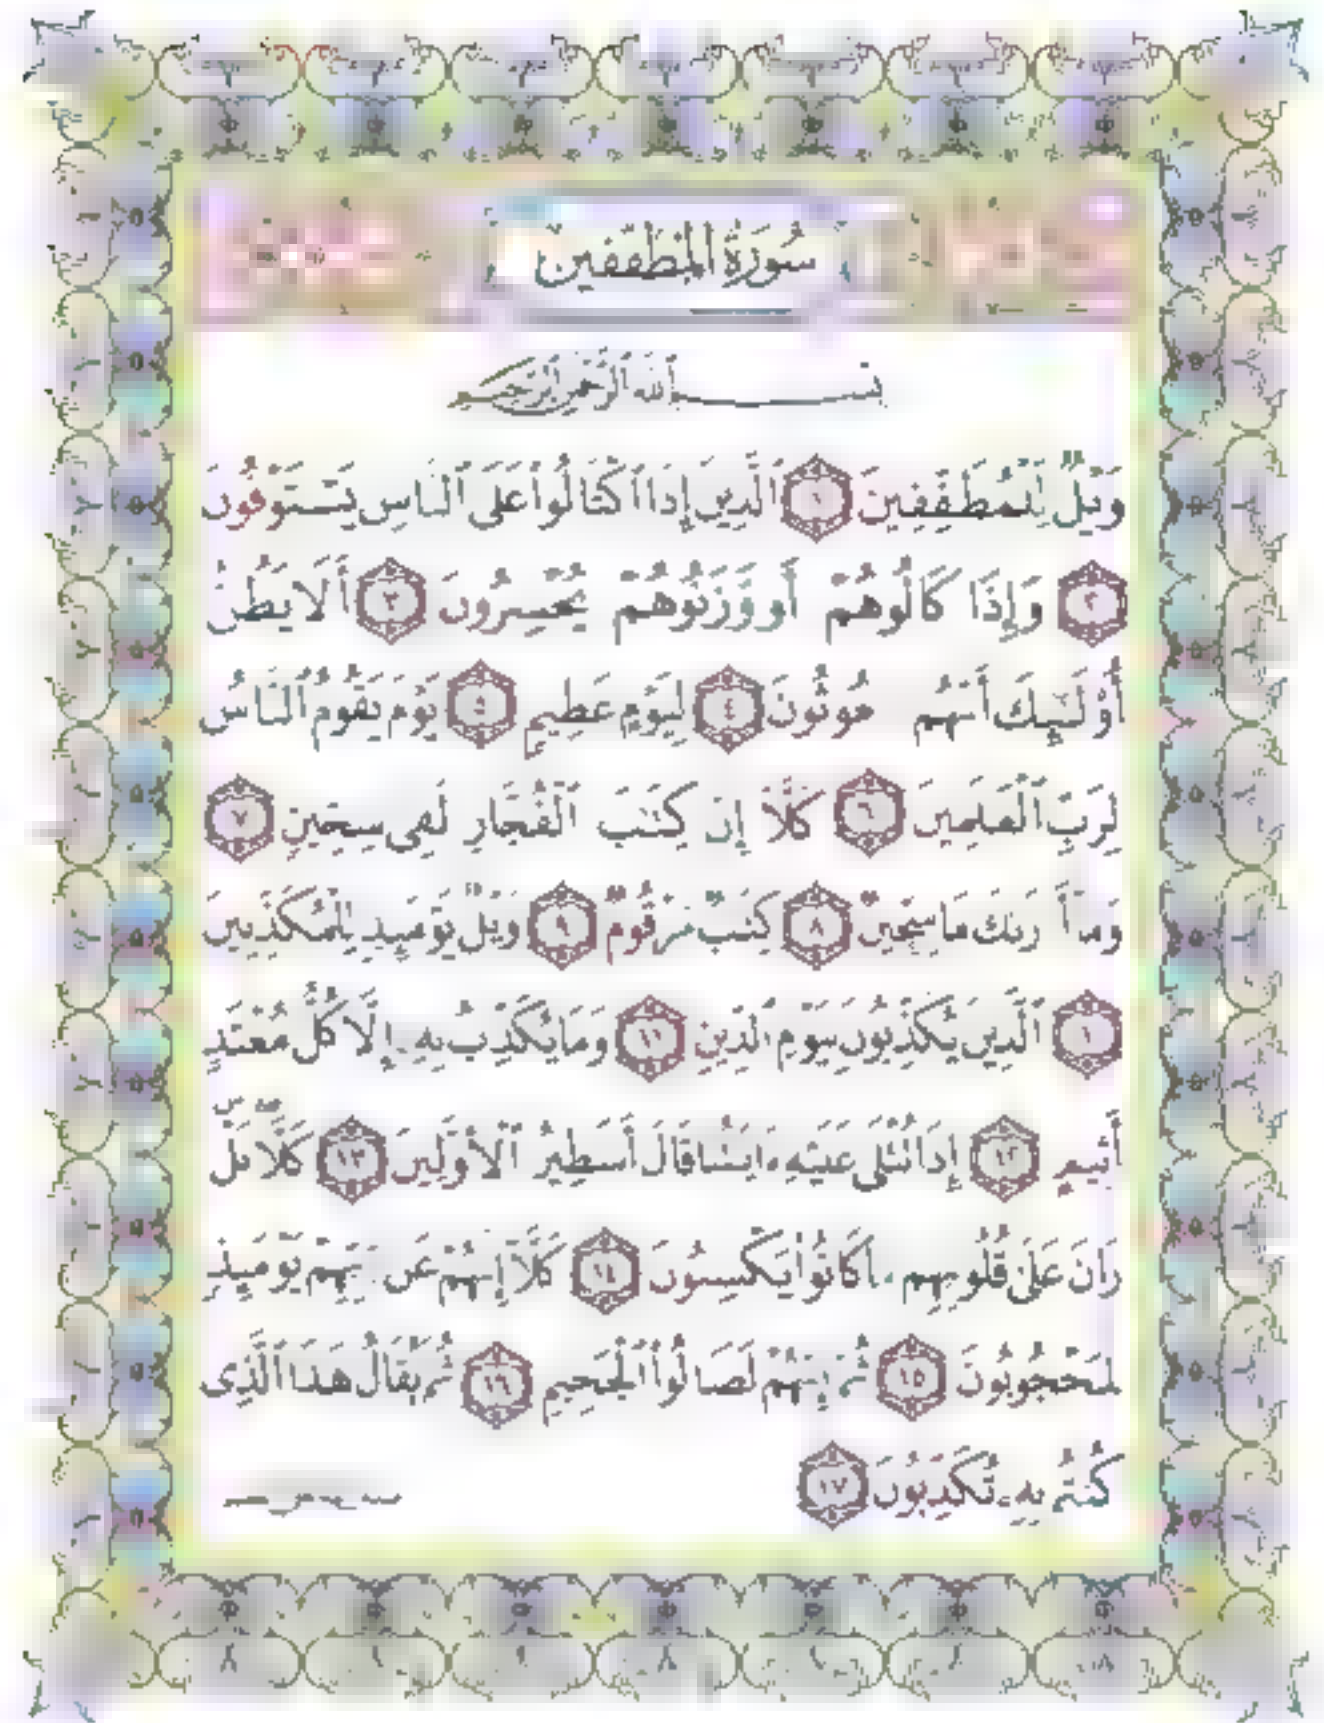 سُورَةُ المُطَفِّفِين
بِسْمِ ٱللَّهِ ٱلرَّحْمَٰنِ ٱلرَّحِيمِ
وَيْلٌ لِّلْمُطَفِّفِينَ ١ ٱلَّذِينَ إِذَا ٱكْتَالُوا۟ عَلَى ٱلنَّاسِ يَسْتَوْفُونَ
٢ وَإِذَا كَالُوهُمْ أَو وَّزَنُوهُمْ يُخْسِرُونَ ٣ أَلَا يَظُنُّ
أُو۟لَٰٓئِكَ أَنَّهُم مَّبْعُوثُونَ ٤ لِيَوْمٍ عَظِيمٍ ٥ يَوْمَ يَقُومُ ٱلنَّاسُ
لِرَبِّ ٱلْعَٰلَمِينَ ٦ كَلَّآ إِنَّ كِتَٰبَ ٱلْفُجَّارِ لَفِى سِجِّينٍ ٧
وَمَآ أَدْرَىٰكَ مَا سِجِّينٌ ٨ كِتَٰبٌ مَّرْقُومٌ ٩ وَيْلٌ يَوْمَئِذٍ لِّلْمُكَذِّبِينَ
١٠ ٱلَّذِينَ يُكَذِّبُونَ بِيَوْمِ ٱلدِّينِ ١١ وَمَا يُكَذِّبُ بِهِۦٓ إِلَّا كُلُّ مُعْتَدٍ
أَثِيمٍ ١٢ إِذَا تُتْلَىٰ عَلَيْهِ ءَايَٰتُنَا قَالَ أَسَٰطِيرُ ٱلْأَوَّلِينَ ١٣ كَلَّا ۖ بَلْ ۜ
رَانَ عَلَىٰ قُلُوبِهِم مَّا كَانُوا۟ يَكْسِبُونَ ١٤ كَلَّآ إِنَّهُمْ عَن رَّبِّهِمْ يَوْمَئِذٍ
لَّمَحْجُوبُونَ ١٥ ثُمَّ إِنَّهُمْ لَصَالُوا۟ ٱلْجَحِيمِ ١٦ ثُمَّ يُقَالُ هَٰذَا ٱلَّذِى
كُنتُم بِهِۦ تُكَذِّبُونَ ١٧